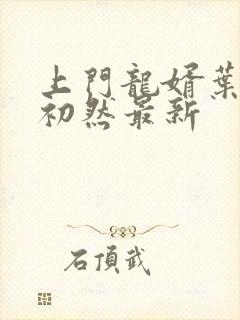 上門龍婿葉
初然最新
石頂武